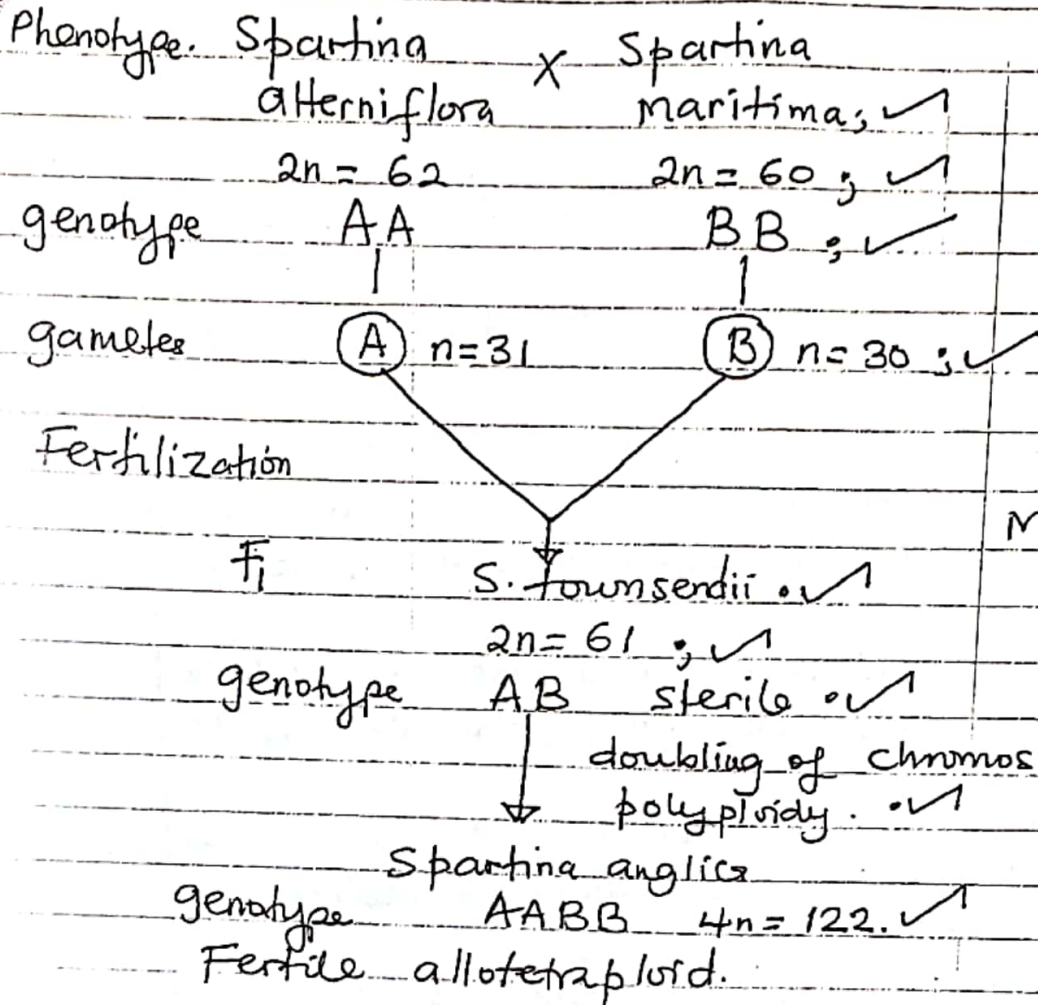 Phenotype. Spartina alterniflora X Spartina maritima; ✓
2n = 62 2n = 60 ; ✓
genotype AA BB ; ✓
gametes A n=31 B n=30 ; ✓
Fertilization
N
F1 S. townsendii . ✓
2n = 61 ; ✓
genotype AB sterile . ✓
doubling of chromos
polyploidy . ✓
Spartina anglica
genotype AABB 4n = 122. ✓
Fertile allotetraploid.